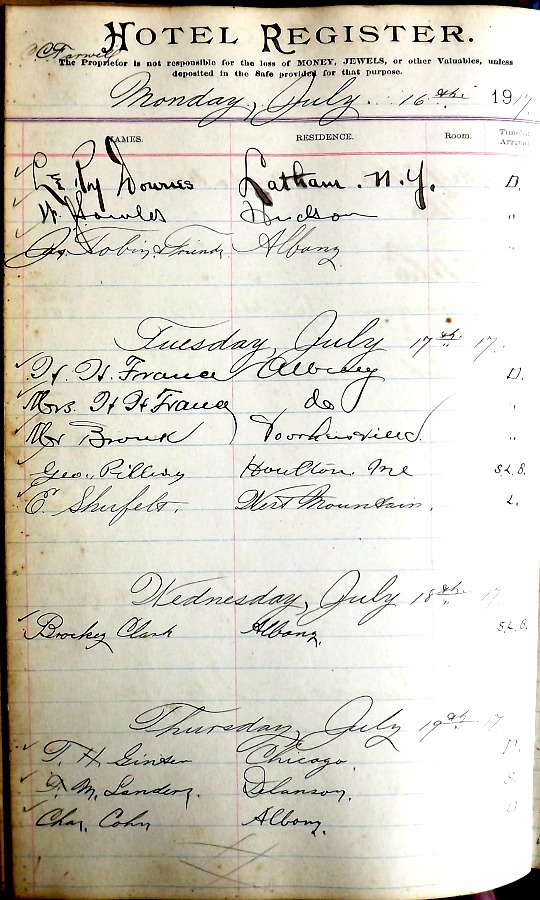 HOTEL REGISTER.
C C Farwell
The Proprietor is not responsible for the loss of MONEY, JEWELS, or other Valuables, unless
deposited in the Safe provided for that purpose.
Monday, July 16th 1917
NAMES. RESIDENCE. Room. Time of Arrival
Downes Latham. N.Y. D.
W. Fowler Hudson "
Tobin & Friend Albany "
Tuesday, July 17th 17.
H. H. France Albany D.
Mrs. H H France do "
Mr Bronk Voorheesville "
Geo. Houlton Me S.L.B.
E. Shufelt. West Mountain. L.
Wednesday, July 18th 17
Clark Albany. S.L.B.
Thursday, July 19th 17
T. H. Chicago. D.
M. Delanson.
Chas. Cohn Albany.